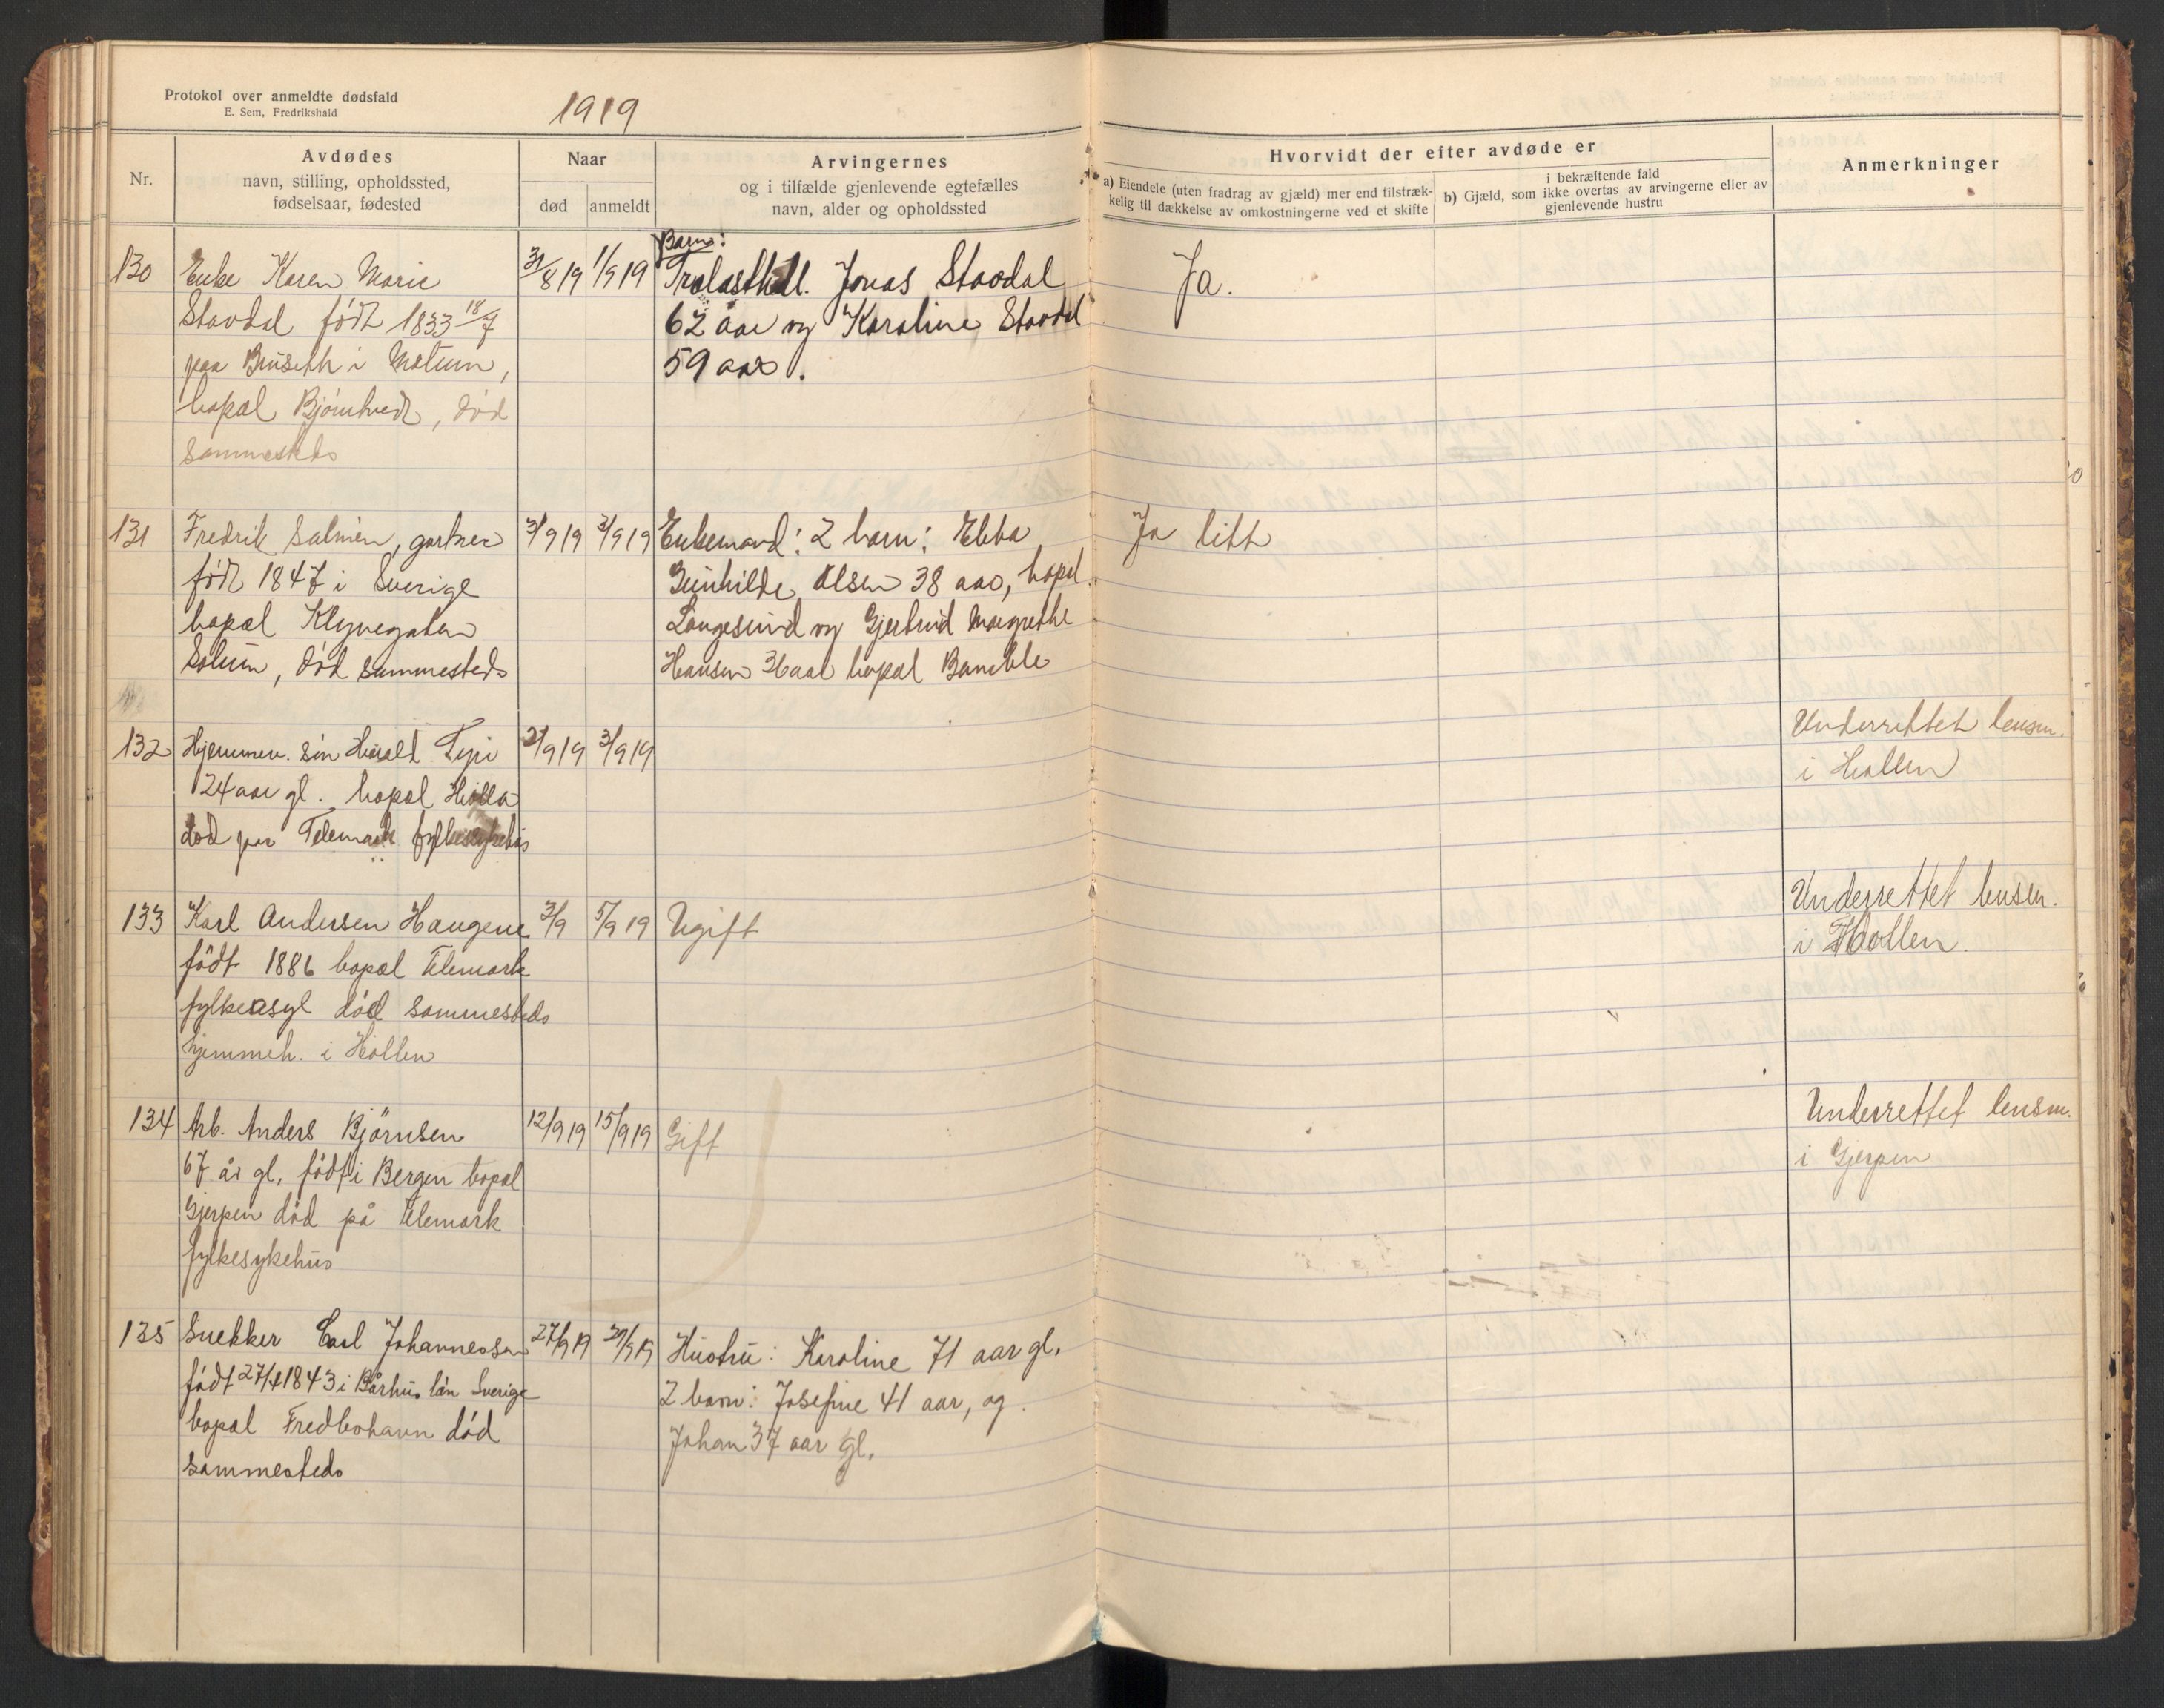 Protokol over anmeldte dødsfald
E. Sem, Fredrikshald
1919
Nr.
Avdødes
navn, stilling, opholdssted,
fødselsaar, fødested
Naar
død
anmeldt
Arvingernes
og i tilfælde gjenlevende egtefælles
navn, alder og opholdssted
Hvorvidt der efter avdøde er
a) Eiendele (uten fradrag av gjæld) mer end tilstræk-
kelig til dækkelse av omkostningerne ved et skifte
i bekræftende fald
b) Gjæld, som ikke overtas av arvingerne eller av
gjenlevende hustru
Anmerkninger
130 Enke Karen Marie 31/8 19 1/9 19 Barn:
Stavdal født 1833 18/7
paa Bruseth i Modum,
bopæl Bjørntvedt, død
sammesteds
Jonas Stavdal
62 aar og Karoline Stavdal
59 aar.
Ja.
131 Fredrik Salmén, gartner 3/9 19 3/9 19
født 1847 i Sverige
bopæl Klyvegaten
Solum, død sammesteds
Enkemand: 2 barn: Ebba
Gunhilde Olsen 38 aar, bopæl
Langesund og Gjertrud Margrethe
Hansen 36 aar bopæl Bamble
Ja litt
132 Hjemmev. søn Harald Tyri 2/9 19 3/9 19
24 aar gl. bopæl Holla
død paa Telemark fylkesykehus
Underrettet lensm.
i Hollen
133 Karl Andersen Haugene 3/9 5/9 19 Ugift
født 1886 bopæl Telemark
fylkeasyl død sammesteds
hjemmeh. i Hollen
Underrettet lensm.
i Hollen.
134 Arb. Anders Björnsen 12/9 19 15/9 19 Gift
67 år gl. født i Bergen bopæl
Gjerpen død på Telemark
fylkesykehus
Underrettet lensm.
i Gjerpen
135 Snekker Carl Johannessen 27/9 19 29/9 19
født 27/4 1843 i län Sverige
bopæl Fredbohavn død
sammesteds
Hustru: Karoline 71 aar gl.
2 barn: Josefine 41 aar, og
Johan 37 aar gl.